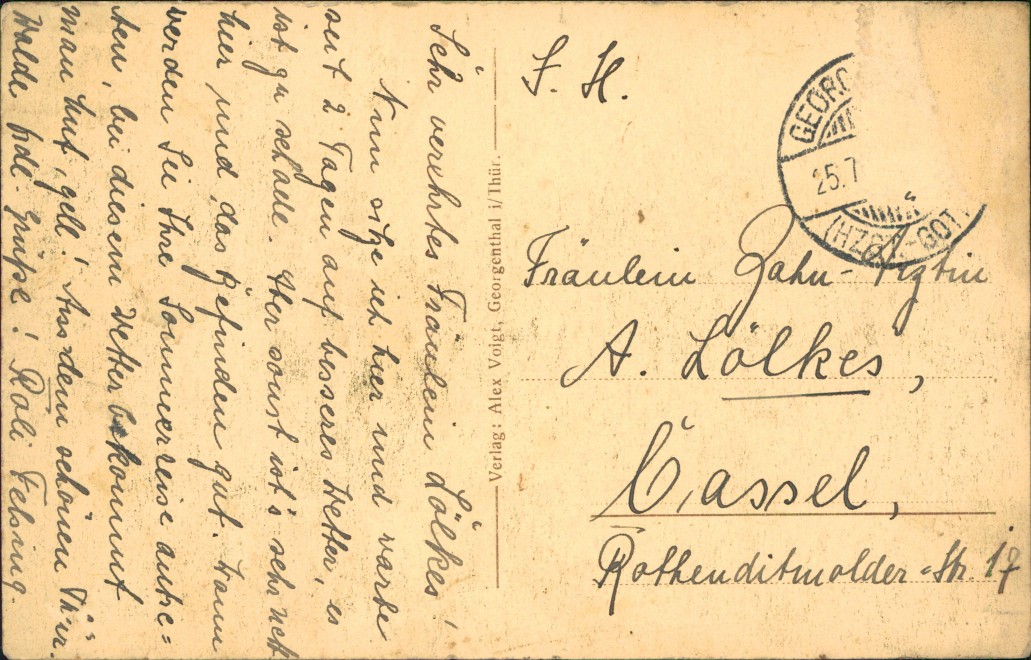 Sehr verehrtes Fräulein Lölkes!
Nun sitze ich hier und warte
seit 2 Tagen auf besseres Wetter, es
ist zu schade. Aber sonst ist's sehr nett
hier und das Befinden gut. Wann
werden Sie Ihre Sommerreise antre=
ten, bei diesem Wetter bekommt
man Wut, gell! Aus dem schönen Thür.
Walde frdl. Grüße! Rali Felsing.
Verlag: Alex Voigt, Georgenthal i/Thür.
F. H.
GEORG
25.7
(HZGT. GOT
Fräulein Zahn-Ärztin
A. Lölkes,
Cassel,
Rothenditmolder-Str. 17